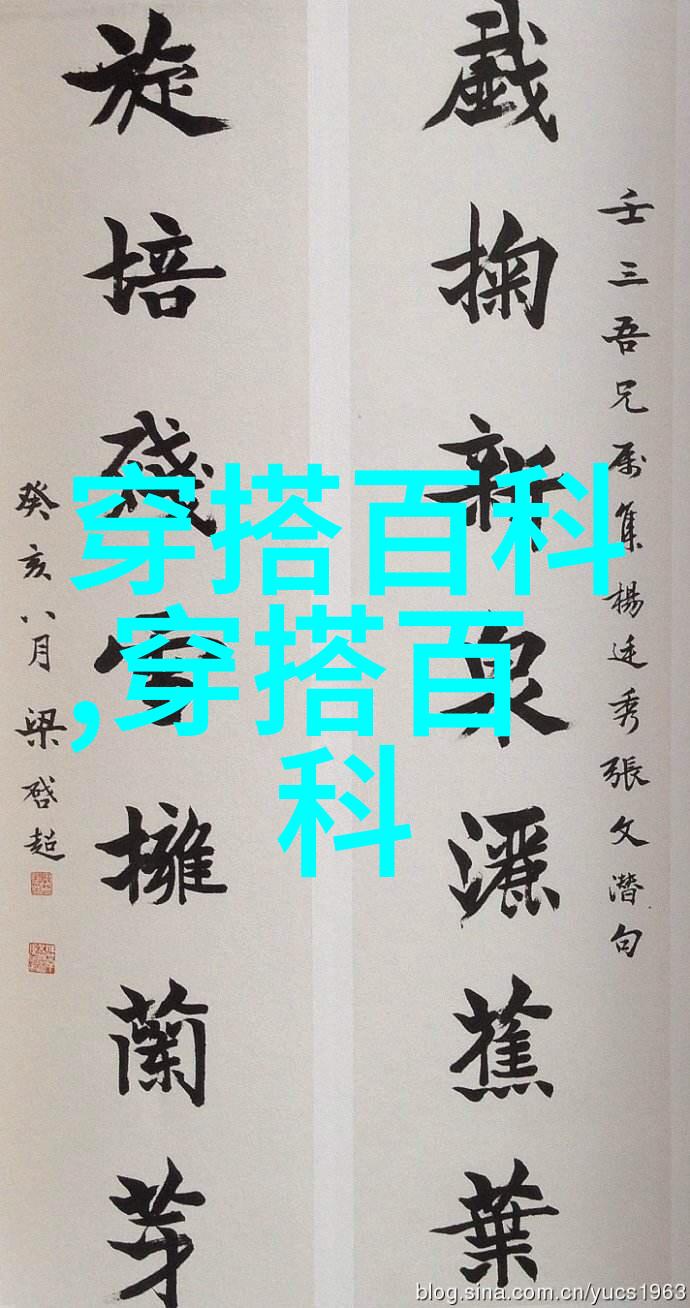 壬三吾兄属集楊廷秀張文潛句
戲掬新泉灑蕉葉
旋培殘擁蘭芽
癸亥八月梁啓超
穿搭百科
,穿搭百
科
blog.sina.com.cn/yucs1963